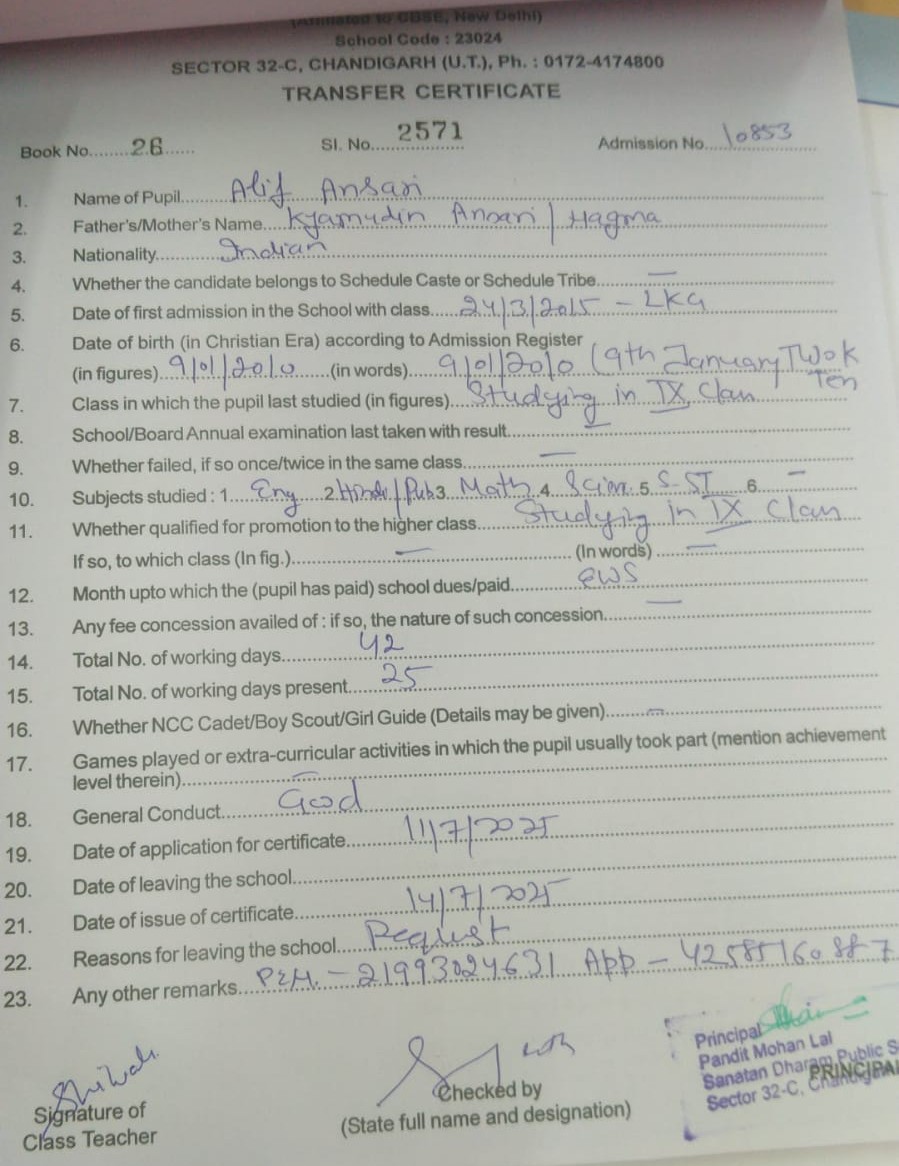 (Affiliated to CBSE, New Delhi)
School Code : 23024
SECTOR 32-C, CHANDIGARH (U.T.), Ph. : 0172-4174800
TRANSFER CERTIFICATE
Book No........26...... Sl. No....2571........ Admission No....10853......
1. Name of Pupil...Alif Ansari
2. Father's/Mother's Name....Kyamudin Ansari / Hagma
3. Nationality...Indian
4. Whether the candidate belongs to Schedule Caste or Schedule Tribe....—
5. Date of first admission in the School with class.....24/3/2015 - LKG
6. Date of birth (in Christian Era) according to Admission Register
(in figures)...9/01/2010......(in words)....9/01/2010 (9th January Twok
Ten
7. Class in which the pupil last studied (in figures)....Studying in IX Class
8. School/Board Annual examination last taken with result....—
9. Whether failed, if so once/twice in the same class....—
10. Subjects studied : 1....Eng....2.Hindi/Pub3 Math 4 Scien 5 S-ST 6 —
11. Whether qualified for promotion to the higher class....Studying in IX Class
If so, to which class (In fig.)....— (In words) ....—
12. Month upto which the (pupil has paid) school dues/paid....EWS
13. Any fee concession availed of : if so, the nature of such concession....—
14. Total No. of working days....42
15. Total No. of working days present....25
16. Whether NCC Cadet/Boy Scout/Girl Guide (Details may be given)....—
17. Games played or extra-curricular activities in which the pupil usually took part (mention achievement
level therein)....—
18. General Conduct....Good
19. Date of application for certificate....11/7/2025
20. Date of leaving the school....
21. Date of issue of certificate....14/7/2025
22. Reasons for leaving the school....Request
23. Any other remarks...PEN - 21993024631 App -
Signature of
Class Teacher
Checked by
(State full name and designation)
Principal
Pandit Mohan Lal
Sanatan Dharam Public S
PRINCIPAL
Sector 32-C, Chandigarh